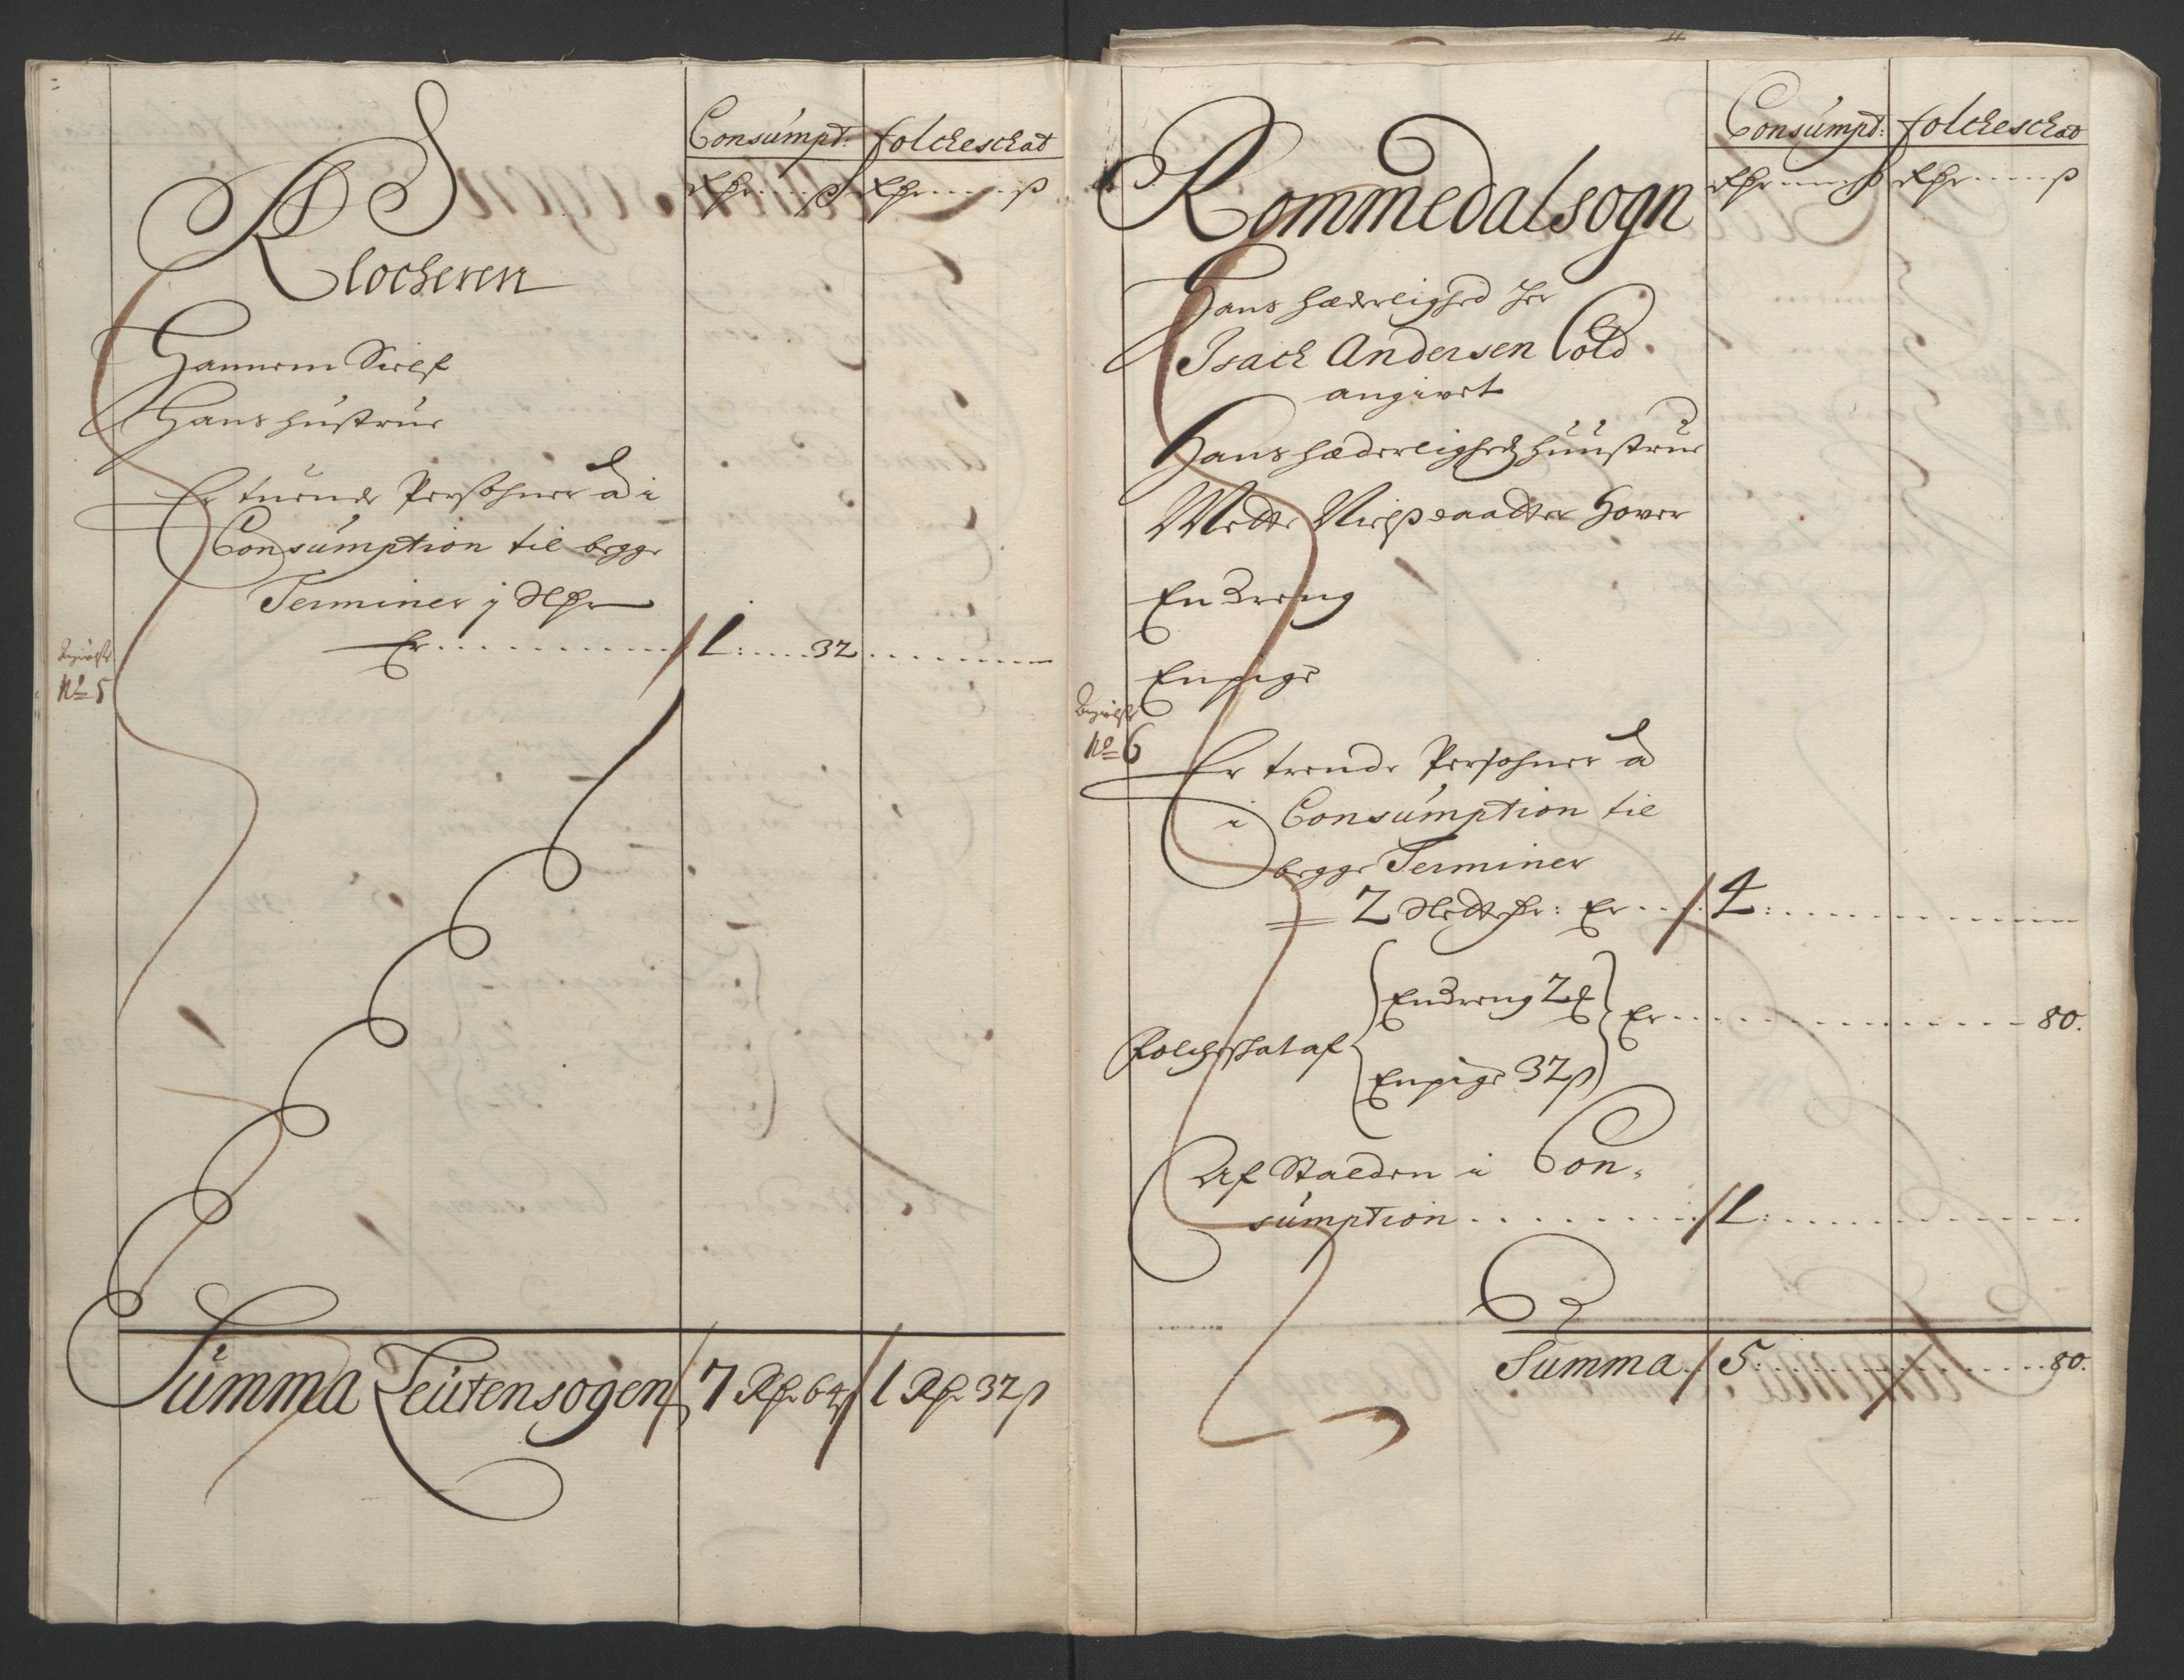 Consumpt: folckeschat
Rdr ß Rdr ß
Klockeren
Hannem Sielf
Hans Hustrue
Er tuende Persohner ad i
Consumption til begge
Terminer j Rdr
Er 1: 32
No 5
Summa Leutensogen 7 Rdr 64 ß 1 Rdr 32 ß
Consumpt: folckeschat
Rdr ß Rdr ß
Rommedalsogn
Hans Hæderlighed Her
Isach Andersen Cold
angivet
Hans Hæderligheds Huustrue
Mette Nielsdaatter Hover
En dreng
En pige
No 6
Er trende Persohner ad
i Consumption til
begge Terminer
2 Rdr: Er 4:
Folcheschat af
En dreng 2
En pige 32 ß
Er 80.
Af Stalden i Con-
sumption 1:
Summa 5: 80.